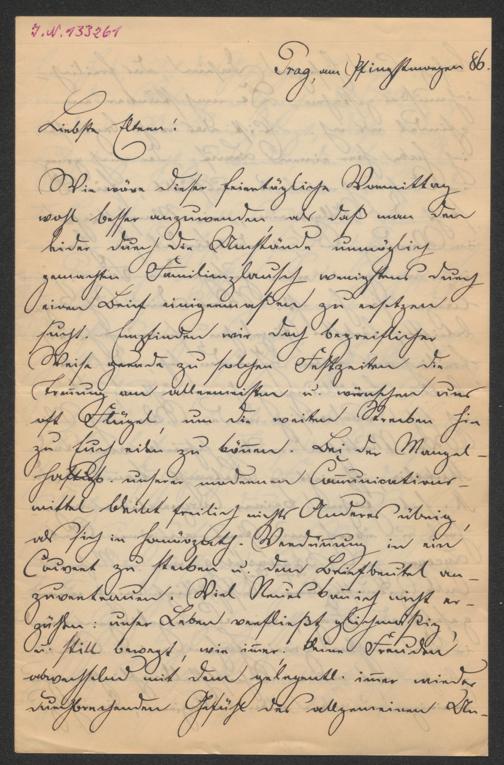 I.N. 133261
Prag, am Pfingstmorgen 86.
Liebste Eltern!
Wie wäre dieser feiertägliche Vormittag
wohl besser anzuwenden, als daß man den
leider durch die Umstände unmöglich
gemachten Familienplausch wenigstens durch
einen Brief einigermaßen zu ersetzen
sucht. Empfinden wir doch begreiflicher
Weise gerade zu solchen Festzeiten die
Trennung am allermeisten u. wünschen uns
oft Flügel, um die weiten Strecken hin
zu Euch eilen zu können. Bei der Mangel-
haftigk. unserer modernen Comunications-
mittel bleibt freilich nichts Anderes übrig,
als sich in homöopath. Verdünnung in ein
Couvert zu stecken u. dem Briefbeutel an-
zuvertrauen. Viel Neues kann ich nicht er-
zählen: unser Leben verfließt gleichmäßig
u. still bewegt, wie immer. Kleine Freuden
abwechselnd mit dem gelegentl. immer wieder
durchbrechenden Gefühl des allgemeinen Un-